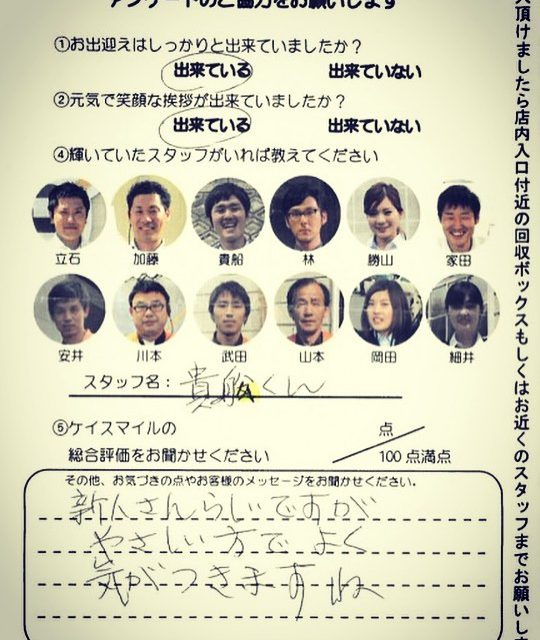 アンケートのご協力をお願いします
①お出迎えはしっかりと出来ていましたか？
出来ている 出来ていない
②元気で笑顔な挨拶が出来ていましたか？
出来ている 出来ていない
④輝いていたスタッフがいれば教えてください
立石 加藤 貴船 林 勝山 家田
安井 川本 武田 山本 岡田 細井
スタッフ名： 貴船くん
⑤ケイスマイルの 点
総合評価をお聞かせください 100点満点
その他、お気づきの点やお客様のメッセージをお聞かせください。
新人さんらしいですが
やさしい方でよく
気がつきますね
頂けましたら店内入口付近の回収ボックスもしくはお近くのスタッフまでお願いし